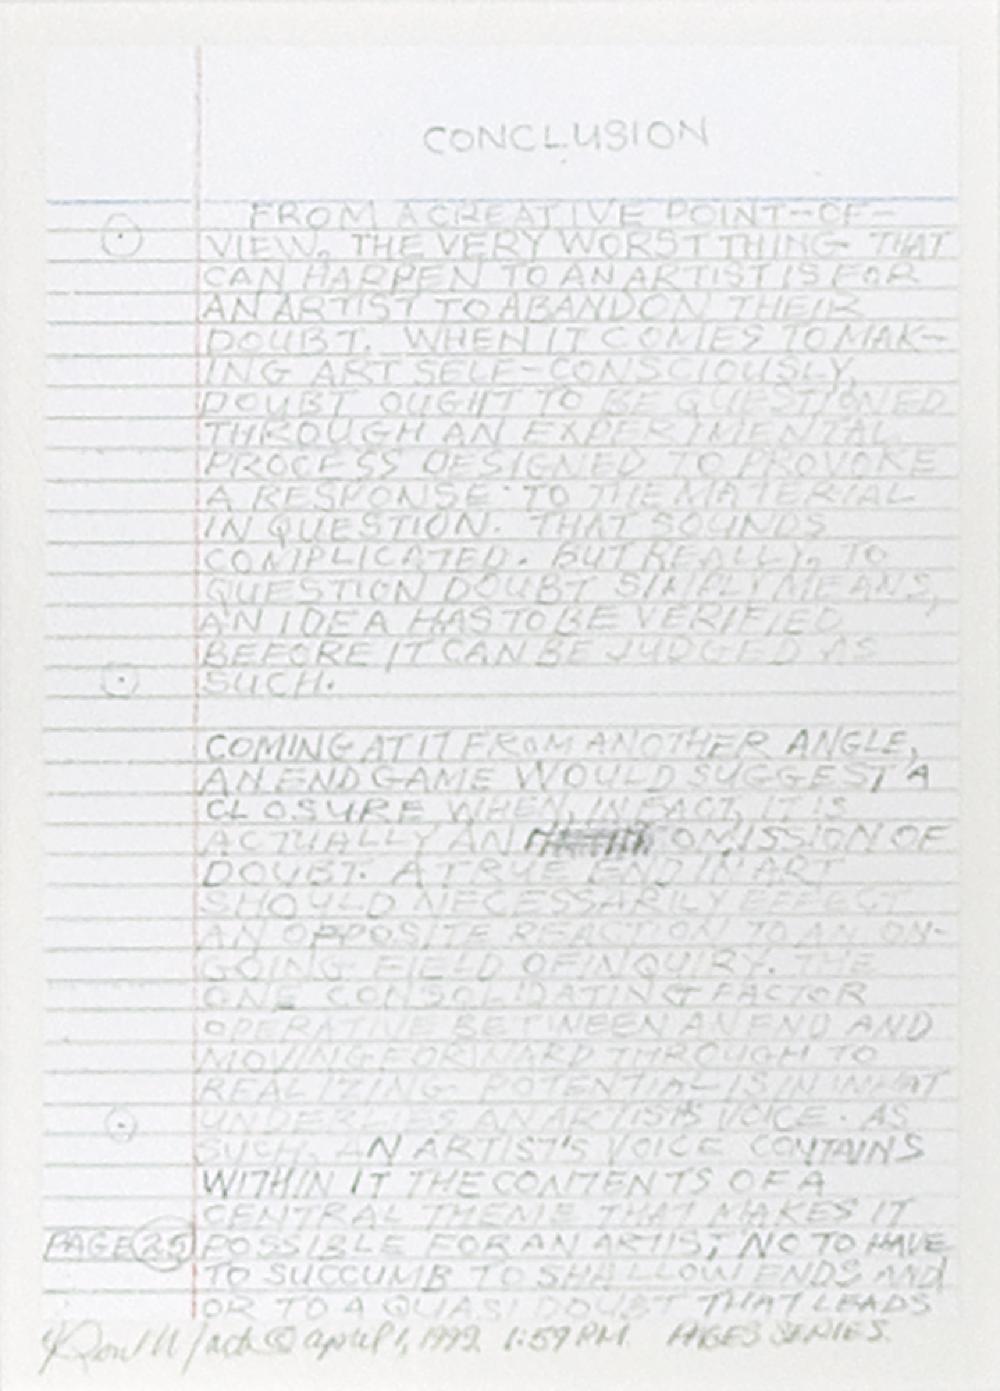 CONCLUSION
FROM A CREATIVE POINT-OF-
VIEW, THE VERY WORST THING THAT
CAN HAPPEN TO AN ARTIST IS FOR
AN ARTIST TO ABANDON THEIR
DOUBT. WHEN IT COMES TO MAK-
ING ART SELF-CONSCIOUSLY,
DOUBT OUGHT TO BE QUESTIONED
THROUGH AN EXPERIMENTAL
PROCESS DESIGNED TO PROVOKE
A RESPONSE TO THE MATERIAL
IN QUESTION. THAT SOUNDS
COMPLICATED. BUT REALLY, TO
QUESTION DOUBT SIMPLY MEANS,
AN IDEA HAS TO BE VERIFIED
BEFORE IT CAN BE JUDGED AS
SUCH.
COMING AT IT FROM ANOTHER ANGLE,
AN END GAME WOULD SUGGEST A
CLOSURE WHEN, IN FACT, IT IS
ACTUALLY AN OMISSION OF
DOUBT. A TRUE END IN ART
SHOULD NECESSARILY EFFECT
AN OPPOSITE REACTION TO AN ON-
GOING FIELD OF INQUIRY. THE
ONE CONSOLIDATING FACTOR
OPERATIVE BETWEEN AN END AND
MOVING FORWARD THROUGH TO
REALIZING POTENTIAL IS IN WHAT
UNDERLIES AN ARTIST'S VOICE. AS
SUCH, AN ARTIST'S VOICE CONTAINS
WITHIN IT THE CONTENTS OF A
CENTRAL THEME THAT MAKES IT
PAGE 25 POSSIBLE FOR AN ARTIST, NO TO HAVE
TO SUCCUMB TO SHALLOW ENDS AND
OR TO A QUASI DOUBT THAT LEADS
april 1, 1992 1:59 PM. PAGES SERIES.